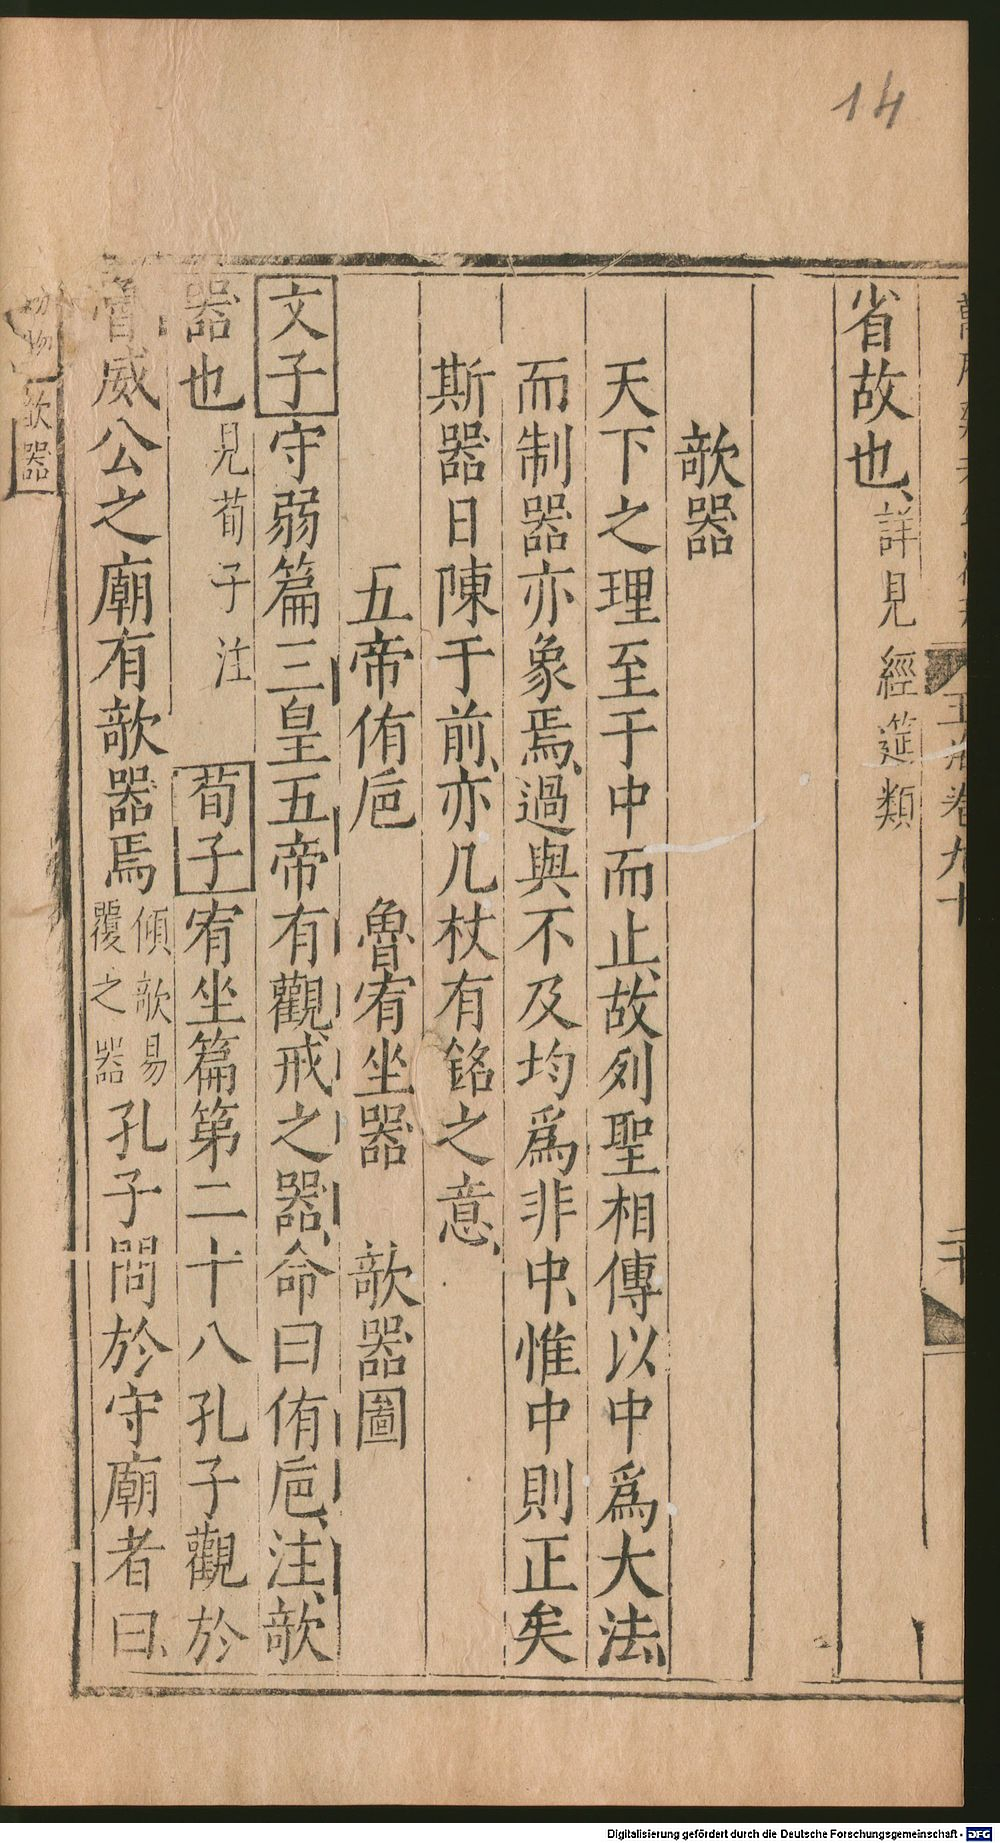 14
省故也、詳見經筵類
欹器
天下之理至于中而止、故列聖相傳以中爲大法、
而制器亦象焉、過與不及均爲非中、惟中則正矣
斯器日陳于前、亦几杖有銘之意、
五帝侑巵　魯宥坐器　欹器圖
文子守弱篇三皇五帝有觀戒之器、命曰侑巵、注、欹
器也見荀子注　荀子宥坐篇第二十八孔子觀於
魯威公之廟有欹器焉傾欹易覆之器孔子問於守廟者曰、
物 欹器
卷九十
二十
Digitalisierung gefördert durch die Deutsche Forschungsgemeinschaft - DFG